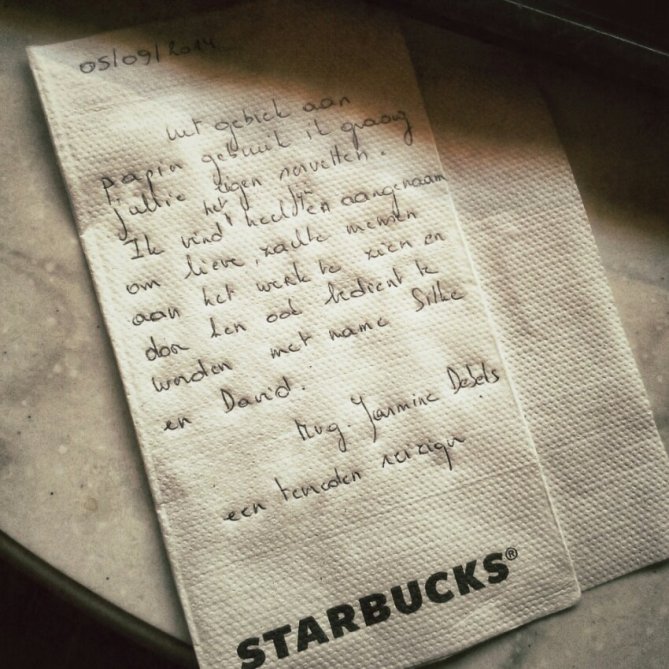 05/09/2014
uit gebrek aan
papier gebruik ik graag
jullie eigen servetten.
Ik vind het heel fijn aangenaam
om lieve, zachte mensen
aan het werk te zien en
door hen ook bedient te
worden met name Silke
en David.
Mvg. Jasmine Debels
een tevreden reiziger
STARBUCKS®